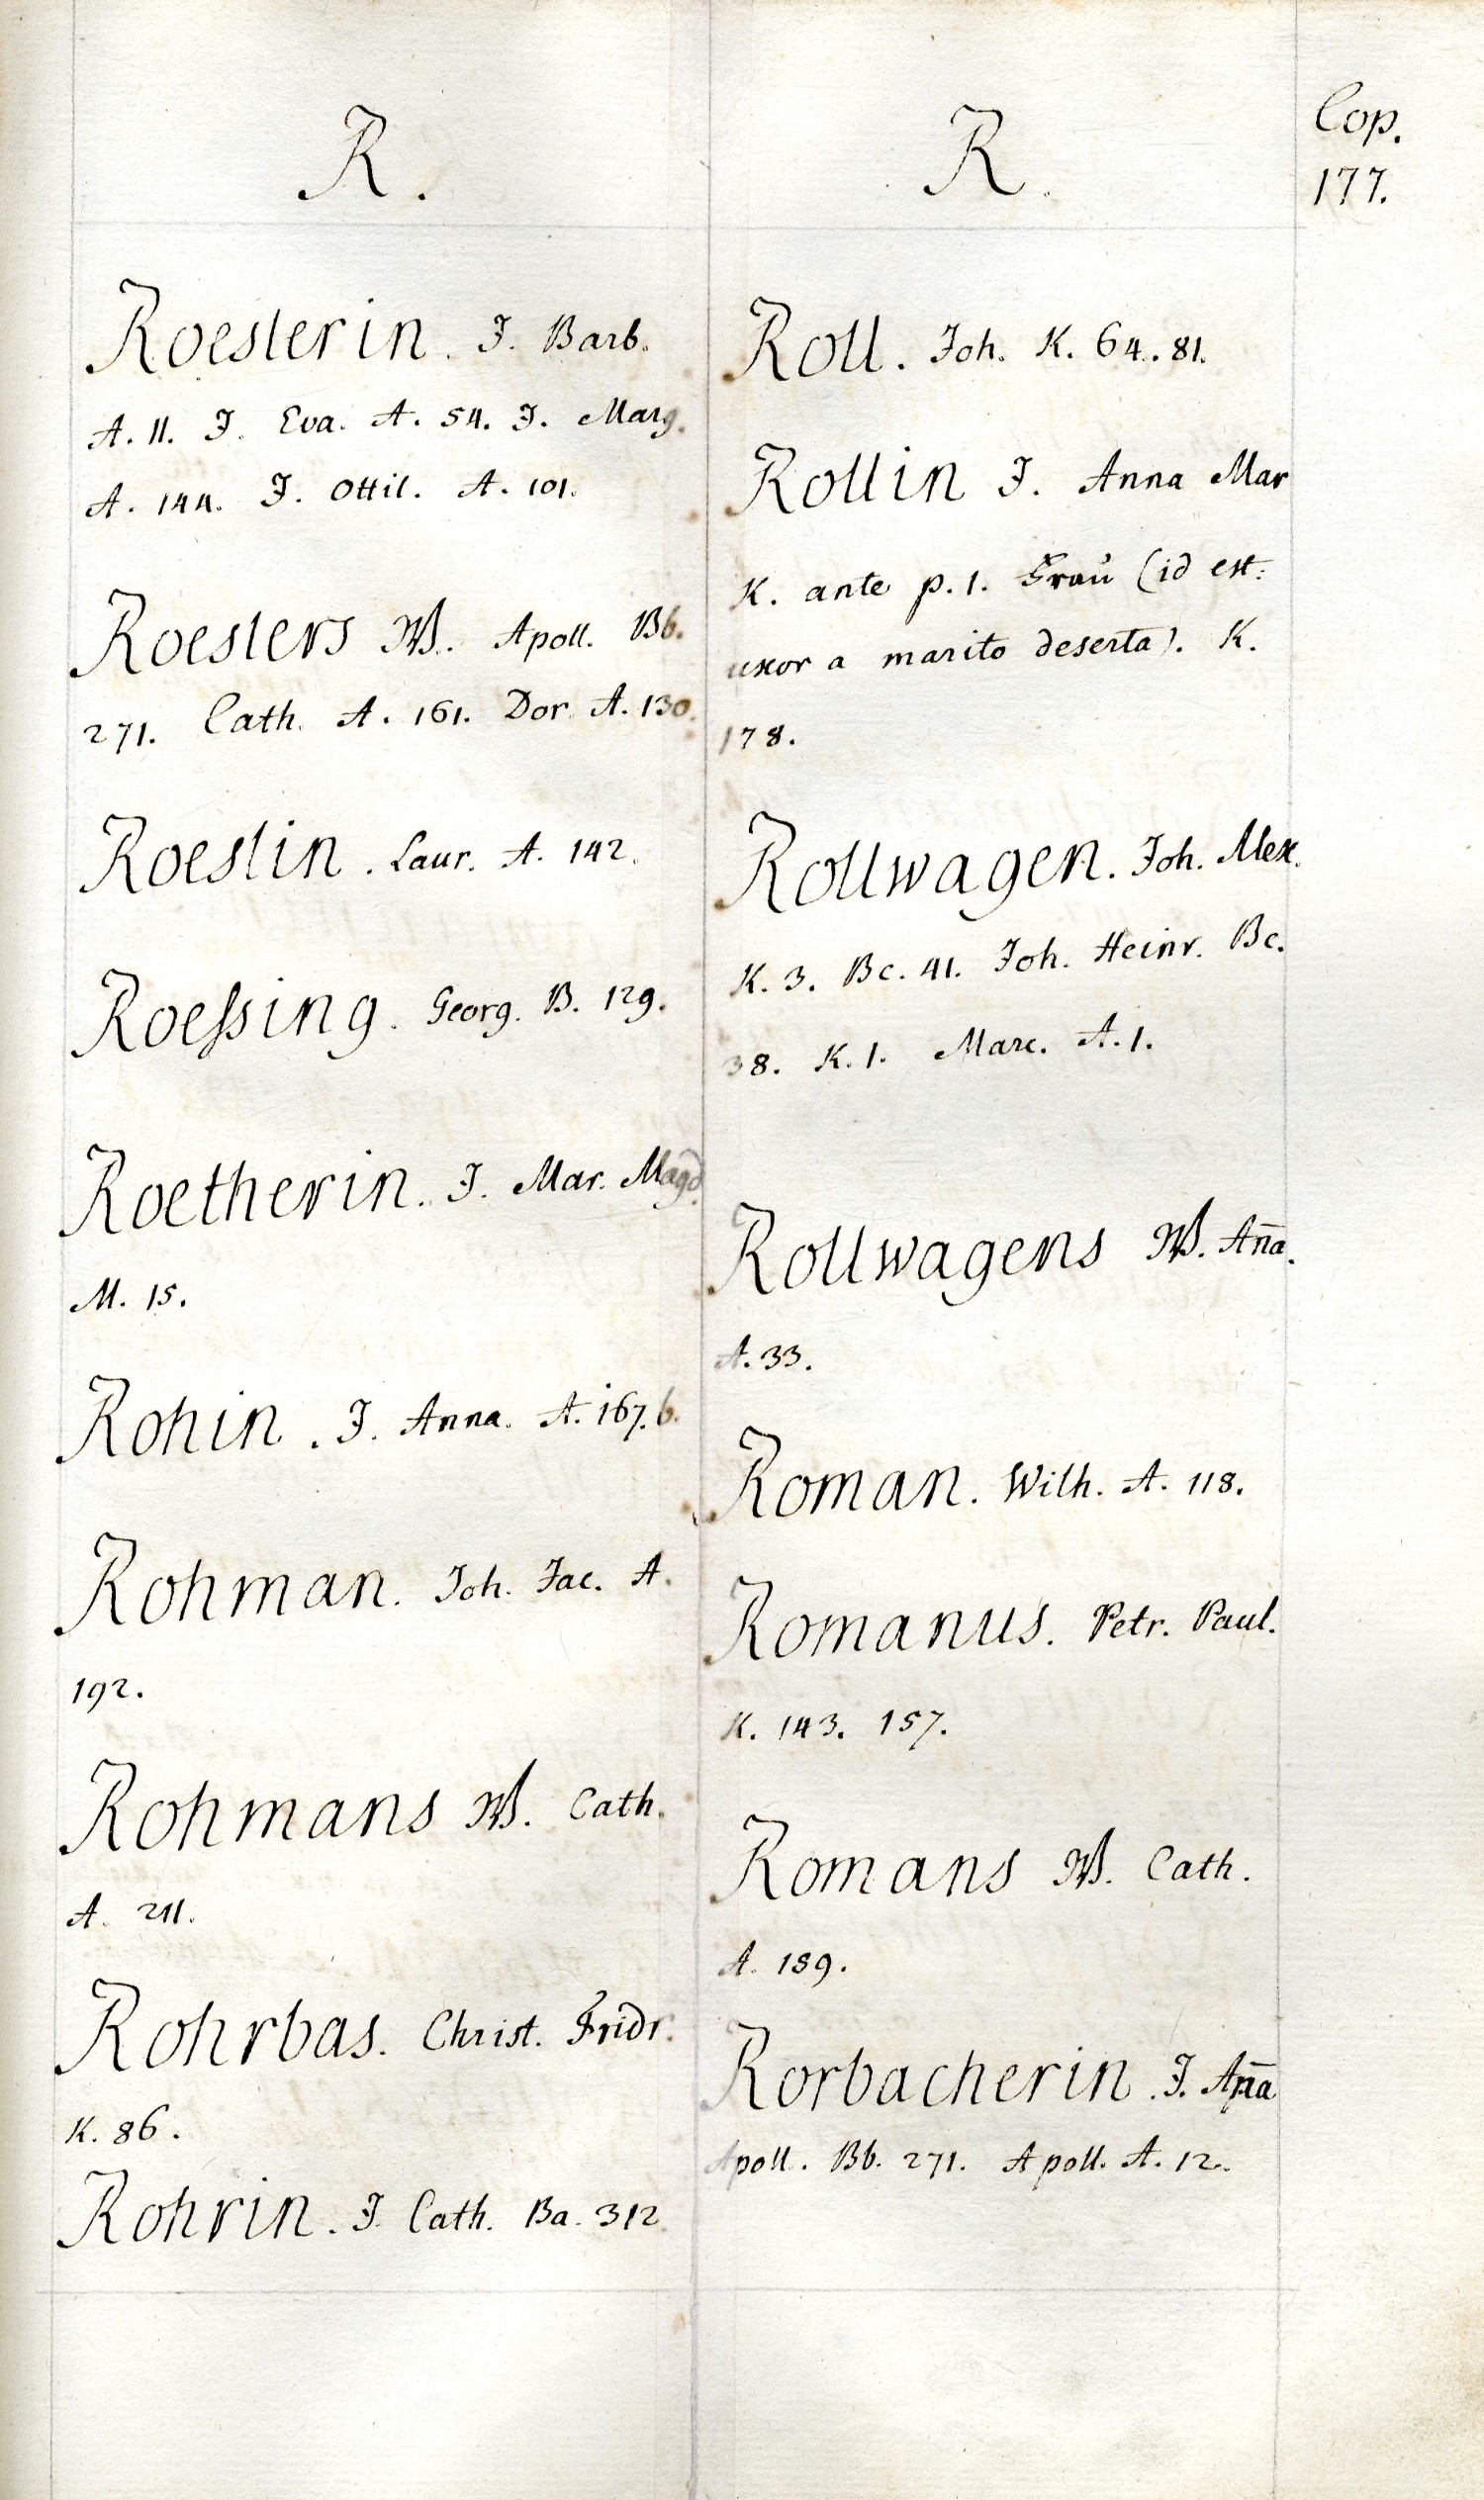 R.
Roeslerin. J. Barb.
A. 11. J. Eva. A. 54. J. Marg.
A. 144. J. Ottil. A. 101.
Roeslers W. Apoll. Bb.
271. Cath. A. 161. Dor. A. 130.
Roeslin. Laur. A. 142.
Roessing. Georg. B. 129.
Roetherin. J. Mar. Magd.
M. 15.
Rohin. J. Anna. A. 167. b.
Rohman. Joh. Jac. A.
192.
Rohmans W. Cath.
A. 211.
Rohrbas. Christ. Fridr.
K. 86.
Rohrin. J. Cath. Ba. 312.
R.
Roll. Joh. K. 64. 81.
Rollin J. Anna Mar
K. ante p. 1. Frau (id est:
uxor a marito deserta). K.
178.
Rollwagen. Joh. Alex.
K. 3. Bc. 41. Joh. Heinr. Bc.
38. K. 1. Marc. A. 1.
Rollwagens W. An̄a.
A. 33.
Roman. Wilh. A. 118.
Romanus. Petr. Paul.
K. 143. 157.
Romans W. Cath.
A. 189.
Rorbacherin. J. An̄a
Apoll. Bb. 271. Apoll. A. 12.
Cop.
177.